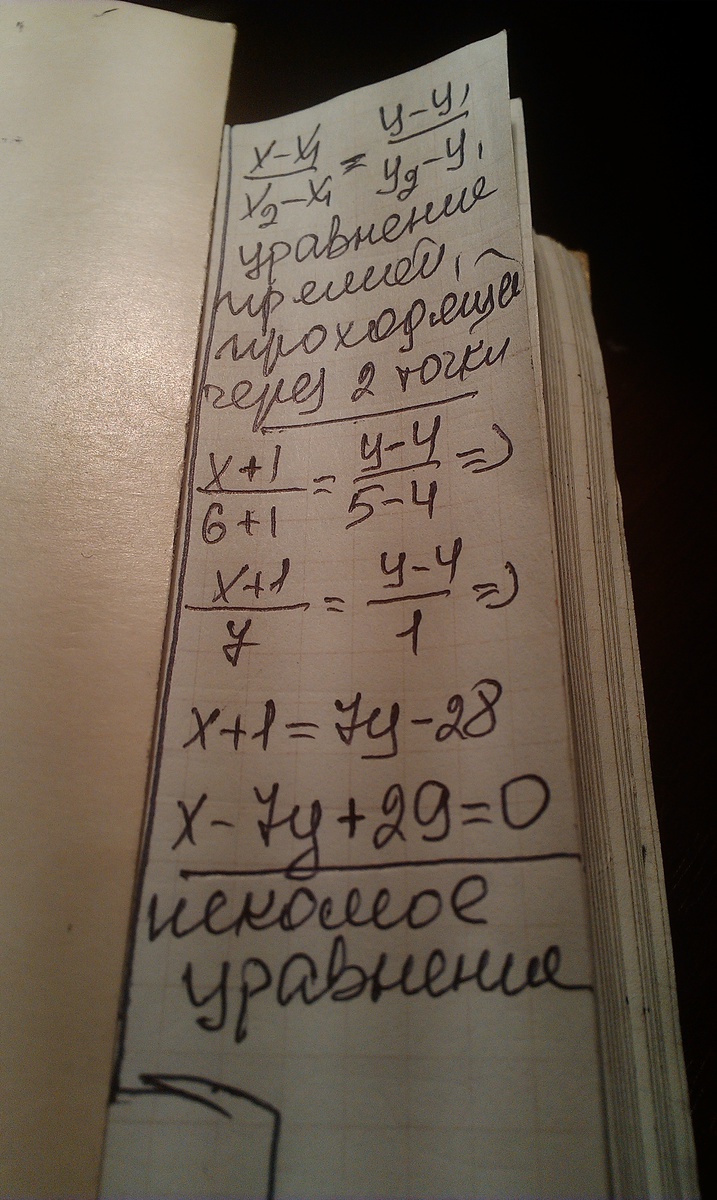 x-x₁/x₂-x₁ = y-y₁/y₂-y₁
уравнение
прямой,
проходящей
через 2 точки
x+1/6+1 = y-4/5-4 =>
x+1/7 = y-4/1 =>
x+1=7y-28
x-7y+29=0
искомое
уравнение